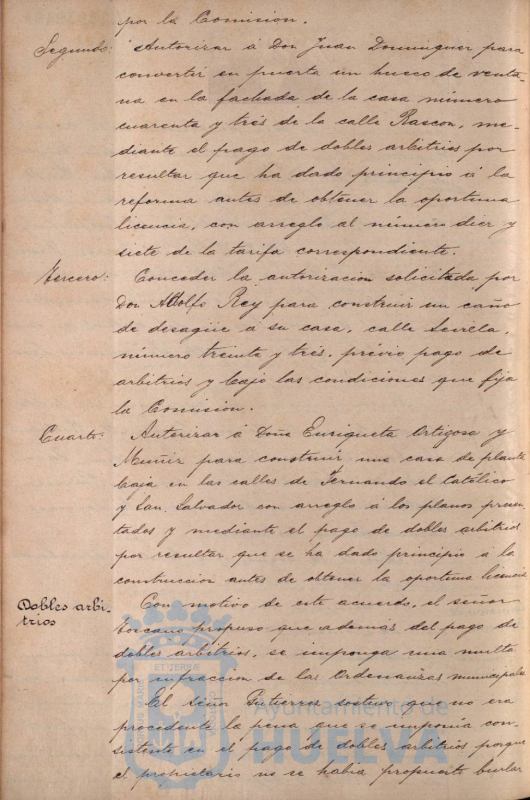 por la Comision.
Segundo: Autorizar á Don Juan Dominguez para
convertir en puerta un hueco de venta-
na en la fachada de la casa número
cuarenta y trés de la calle Rascon, me-
diante el pago de dobles arbitrios por
resultar que ha dado principio á la
reforma antes de obtener la oportuna
licencia, con arreglo al número diez y
siete de la tarifa correspondiente.
Tercero: Conceder la autorizacion solicitada por
Don Adolfo Rey para construir un caño
de desagüe á su casa, calle
número treinta y trés, prévio pago de
arbitrios y bajo las condiciones que fija
la Comision.
Cuarto: Autorizar á Doña Enriqueta Ortigosa y
Muñiz para construir una casa de planta
baja en las calles de Fernando el Católico
y San Salvador con arreglo á los planos presen-
tados y mediante el pago de dobles arbitrios
por resultar que se ha dado principio á la
construccion antes de obtener la oportuna licencia
Dobles arbi-
trios
Con motivo de este acuerdo, el señor
Toscano propuso que además del pago de
dobles arbitrios, se imponga una multa
por infraccion de las Ordenanzas municipales
El Señor Gutierrez sostuvo que no era
procedente la pena que se imponia con-
sistente en el pago de dobles arbitrios porque
el propietario no se habia propuesto burlar
Ayuntamiento de
HUELVA